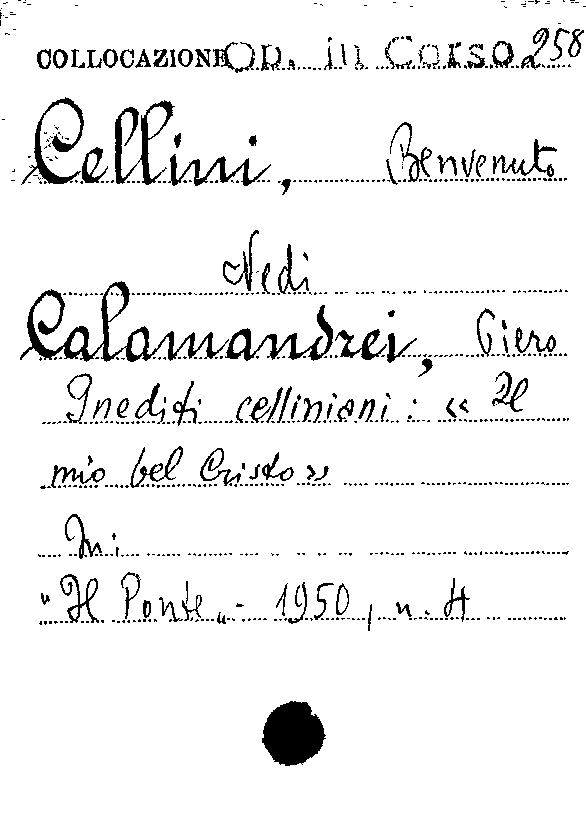 COLLOCAZIONE Op. in Corso 258
Cellini, Benvenuto
Vedi
Calamandrei, Piero
Inediti celliniani: « Il
mio bel Cristo »
In:
"Il Ponte„ - 1950, n. 4